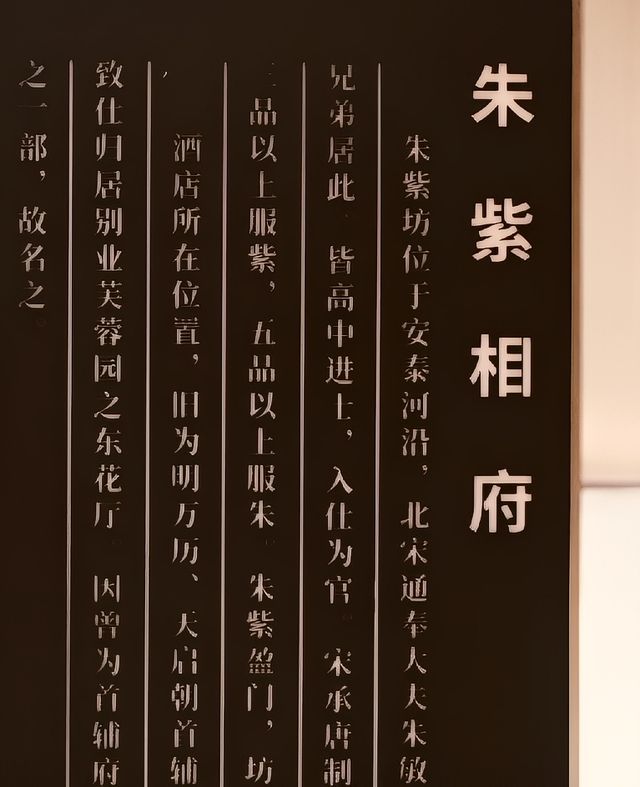 朱紫相府
朱紫坊位于安泰河沿，北宋通奉大夫朱敏
兄弟居此 皆高中进士，入仕为官。宋承唐制
三品以上服紫，五品以上服朱。朱紫盈门，坊
，
酒店所在位置，旧为明万历、天启朝首辅
致仕归居别业芙蓉园之东花厅。因曾为首辅府
之一部，故名之。